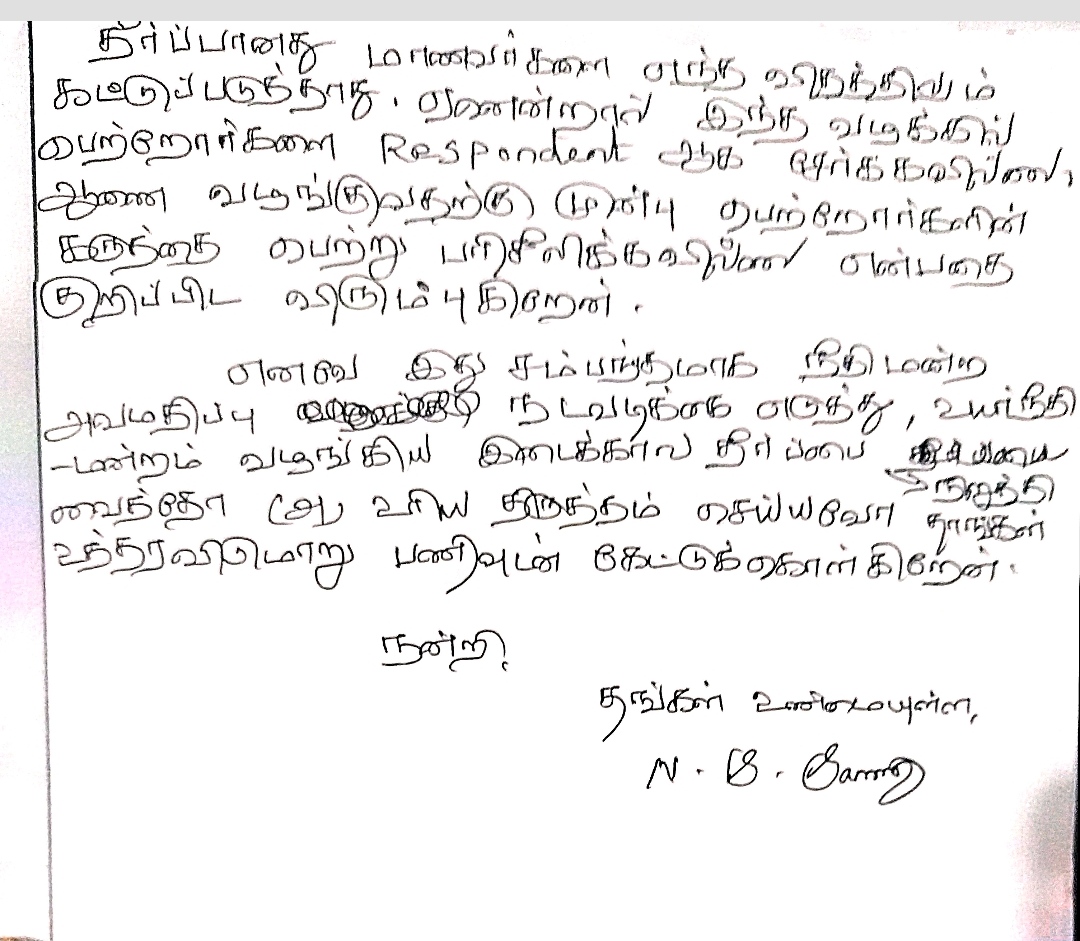 தீர்ப்பானது மாணவர்களை எந்த விதத்திலும்
கட்டுப்படுத்தாது. ஏனென்றால் இந்த வழக்கில்
பெற்றோர்களை Respondent ஆக சேர்க்கவில்லை,
ஆணை வழங்குவதற்கு முன்பு பெற்றோர்களின்
கருத்தை பெற்று பரிசீலிக்கவில்லை என்பதை
குறிப்பிட விரும்புகிறேன்.
எனவே இது சம்பந்தமாக நீதிமன்ற
அவமதிப்பு நடவடிக்கை எடுத்து, உயர்நீதி
-மன்றம் வழங்கிய இடைக்கால தீர்ப்பை நிறுத்தி
வைத்தோ (அ) உரிய திருத்தம் செய்யவோ தாங்கள்
உத்தரவிடுமாறு பணிவுடன் கேட்டுக்கொள்கிறேன்.
நன்றி,
தங்கள் உண்மையுள்ள,
N. B.